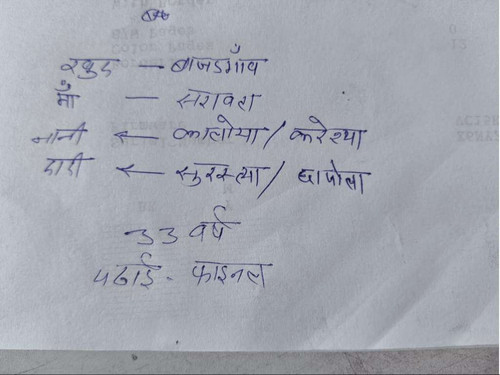 खुद — बाजडगाँव
माँ — सरावता
नानी ← कालोया / करेश्या
दादी ← सुरस्त्या / छापोला
33 वर्ष
पढाई - फाइनल